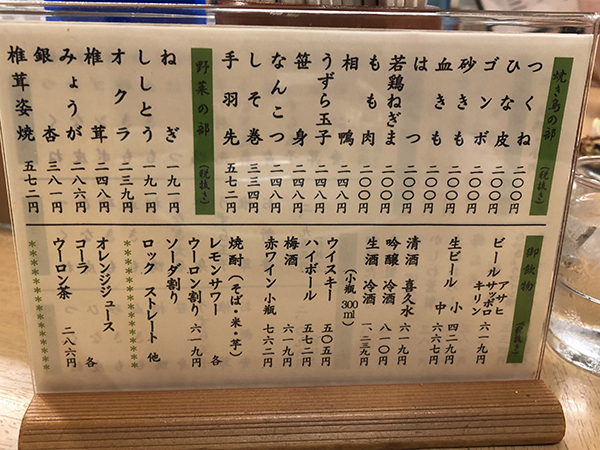 焼き鳥の部 (税抜き)
つくね 二〇〇円
ひな皮 二〇〇円
ゴンボ 二〇〇円
砂きも 二〇〇円
血きも 二〇〇円
はつ 二〇〇円
若鶏ねぎま 二〇〇円
もも肉 二〇〇円
相鴨 二四八円
うずら玉子 二四八円
笹身 二四八円
なんこつ 二四八円
しそ巻 三三四円
手羽先 五七二円
野菜の部 (税抜き)
ねぎ 一九一円
ししとう 一九一円
オクラ 二三九円
椎茸 二四八円
みょうが 二八六円
銀杏 三八一円
椎茸姿焼 五七二円
御飲物 (税抜き)
ビール アサヒ サッポロ キリン 六一九円
生ビール 小 四二九円
中 六六七円
清酒 喜久水 六一九円
吟醸 冷酒 八一〇円
生酒 冷酒 一、二三九円
(小瓶 300ml)
ウイスキー 五〇五円
ハイボール 五七二円
梅酒 六一九円
赤ワイン 小瓶 七六二円
焼酎 (そば・米・芋)
レモンサワー 各
ウーロン割り 六一九円
ソーダ割り
ロック ストレート 他
＊＊＊＊＊＊＊＊＊＊＊
オレンジジュース
コーラ 各
ウーロン茶 二八六円
＊＊＊＊＊＊＊＊＊＊＊